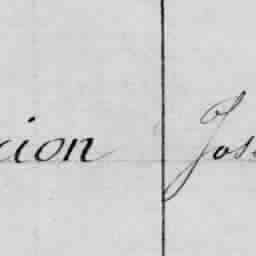 cion Jos